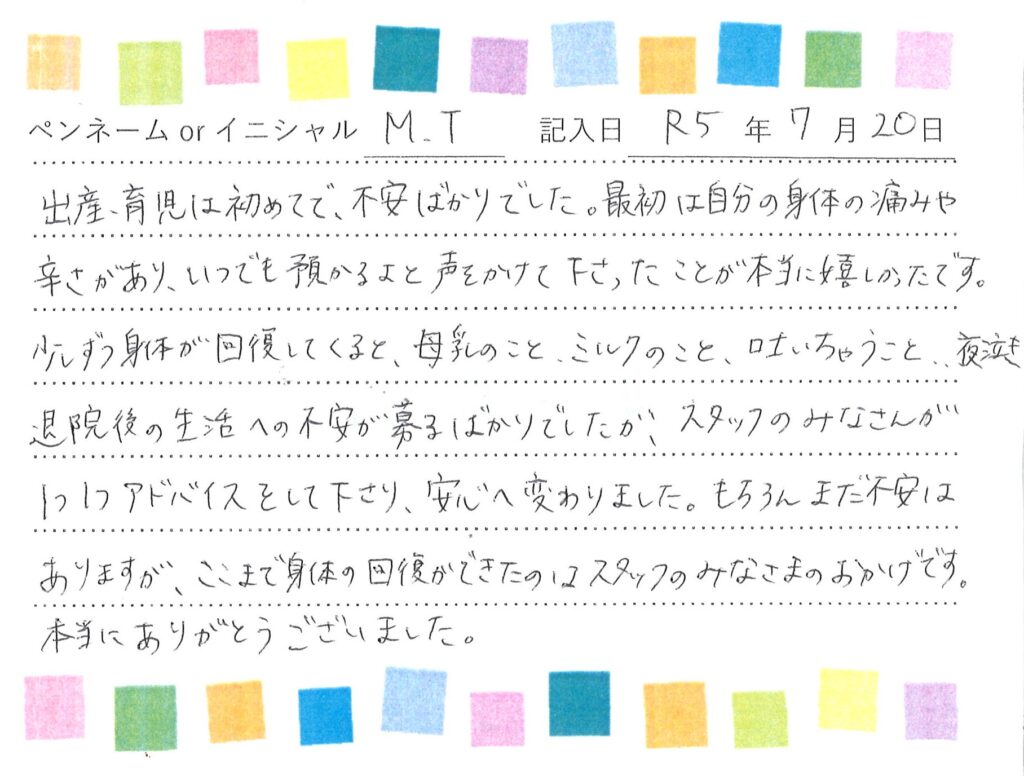 ペンネーム or イニシャル M.T 記入日 R5 年 7 月 20日
出産、育児は初めてで、不安ばかりでした。最初は自分の身体の痛みや
辛さがあり、いつでも預かるよと声をかけて下さったことが本当に嬉しかったです。
少しずつ身体が回復してくると、母乳のこと、ミルクのこと、吐いちゃうこと、夜泣き
退院後の生活への不安が募るばかりでしたが、スタッフのみなさんが
1つ1つアドバイスをして下さり、安心へ変わりました。もちろんまだ不安は
ありますが、ここまで身体の回復ができたのはスタッフのみなさまのおかげです。
本当にありがとうございました。